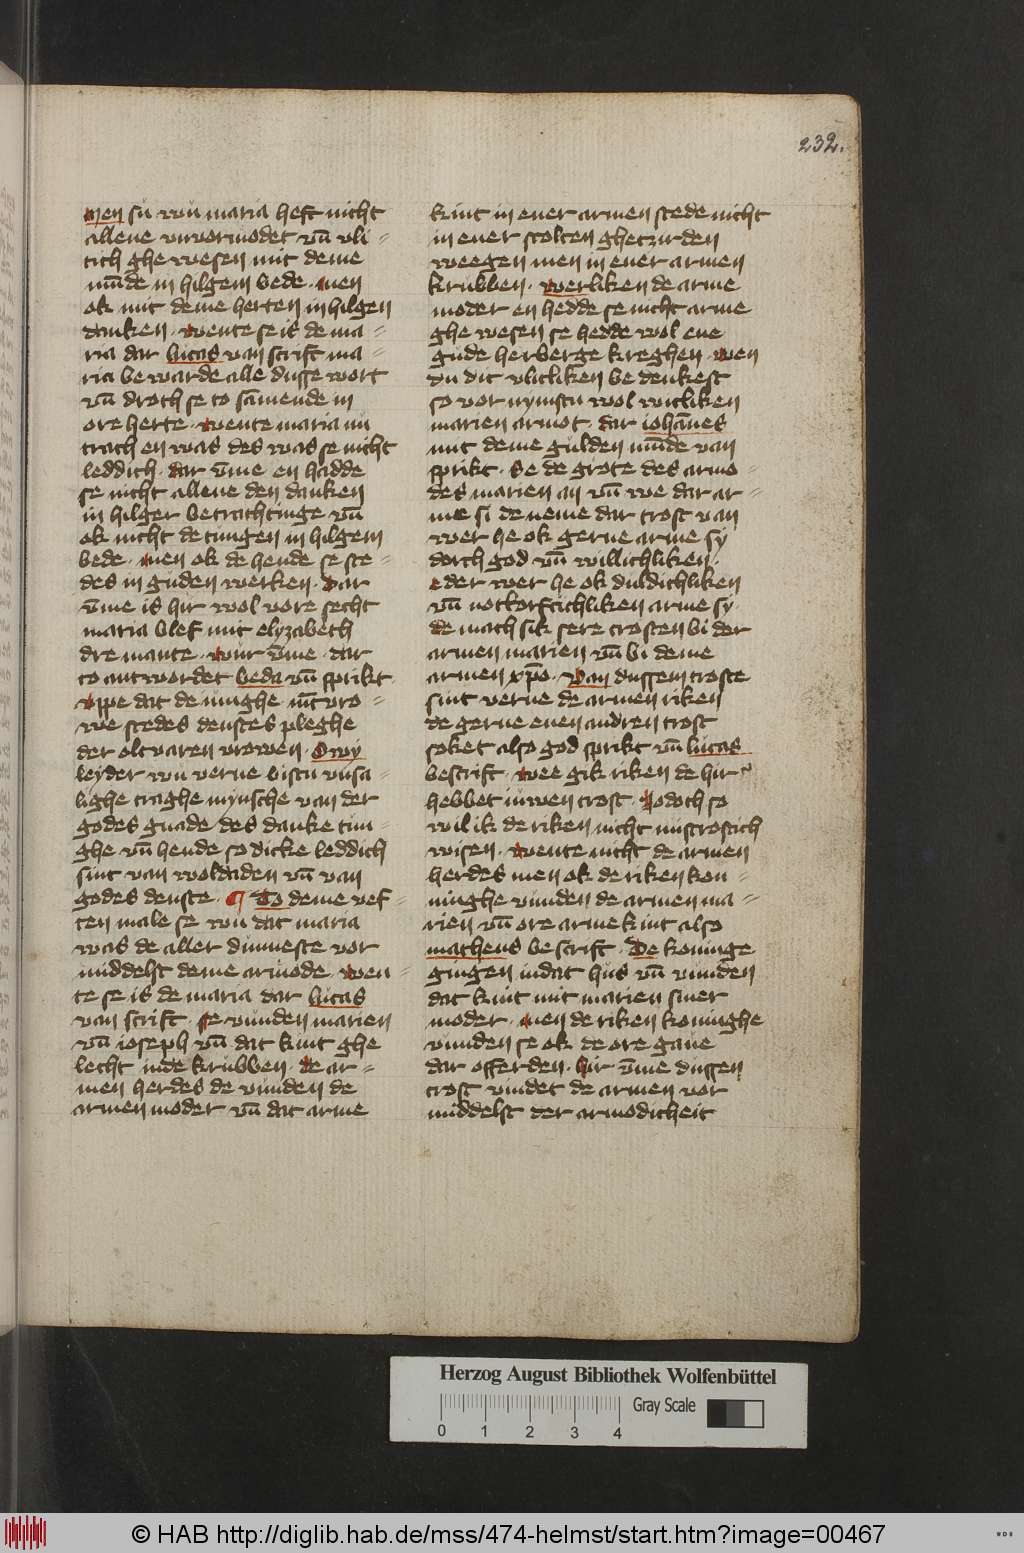 232.
Men sů wů maria heft nicht
allene vnvormodet vn̄ vli⸗
tich ghe wesen mit deme
mūde in hilgem bede. Men
ok mit deme herten in hilgen
danken. Wente se is de ma⸗
ria dar lucas van scrift ma⸗
ria be warde alle dusse wort
vn̄ droch se to sāmende in
ore herte. Wente maria nu
trach en was des was se nicht
leddich. dar v̄me en hadde
se nicht allene den danken
in hilger betrachtinge vn̄
ok nicht de tungen in hilgem
bede. Men ok de hende se ste⸗
des in guden werken. Dar
v̄me is hir wol vore secht
maria blef mit elyzabeth
dre mante. Wur v̄me. dar
to antwordet beda vn̄ sprikt.
Vppe dat de iunghe iūcvro⸗
we stedes denstes pleghe
der oltvaren vrowen. Owy
leyder wu verne bistu vnsa⸗
lighe traghe mynsche van der
godes gnade des danke tun⸗
ghe vn̄ hende so dicke leddich
sint van woldaden vn̄ van
godes denste. ¶ To deme vef⸗
ten male se wu dat maria
was de aller dunneste vor
middelst deme armode. Wen⸗
te se is de maria dar lucas
van scrift. Se vunden marien
vn̄ ioseph vn̄ dat kint ghe
lecht inde krubben. de ar⸗
men herdes de vunden de
armen moder vn̄ dat arme
kint in ener armen stede nicht
in ener stolten ghetzirden
weegen men in ener armen
krubben. Werliken de arme
moder en hedde se nicht arme
ghe wesen se hedde wol ene
gude herberge kreghen. Wen
du dit vlitliken be denkest
so vor nymstu wol witliken
marien armot. dar iohānes
mit deme gulden mūde van
sprikt. Se de grote des armo⸗
des marien an vn̄ we dar ar⸗
me si de neme dar trost van
wer he ok gerne arme sy
dorch god vn̄ willichliken.
eder wer he ok duldichliken
vn̄ notborftichliken arme sy.
de mach sik sere trosten bi der
armen marien vn̄ bi deme
armen xp̄o. Van dussem troste
sint verne de armen riken
de gerne enen andren trost
soket also god sprikt vn̄ lucas
bescrift. Wee gik riken de hir
hebbet iuwen trost. Jodoch so
wil ik de riken nicht mistrostich
wisen. Wente nicht de armen
herdes men ok de riken kon⸗
ninghe vunden de armen ma⸗
rien vn̄ ore arme kint also
matheus bescrift. De koninge
gingen indat hus vn̄ vunden
dat kint mit marien siner
moder. Men de riken koninghe
vunden se ok de ore gaue
dar offerden. hir v̄me dussen
trost vindet de armen vor
middelst der armodicheit
Herzog August Bibliothek Wolfenbüttel
0 1 2 3 4 Gray Scale
© HAB http://diglib.hab.de/mss/474-helmst/start.htm?image=00467